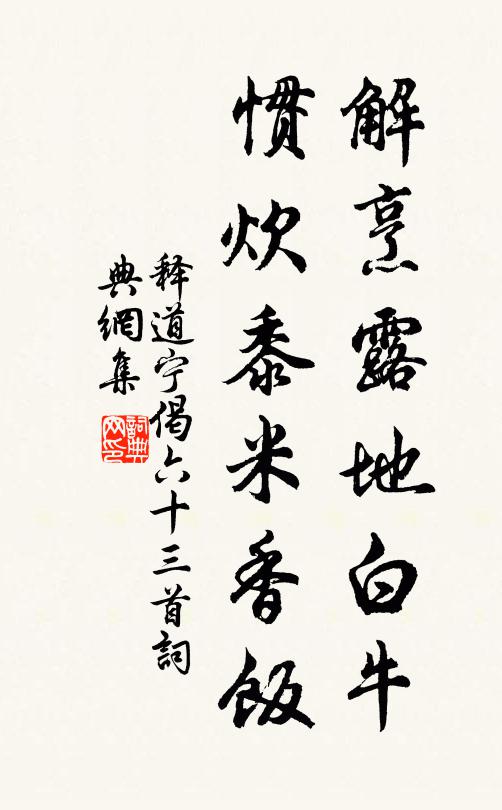 解烹露地白牛
惯炊黍米香饭
释道宁偈六十三首詞
典網集
詞典
网印